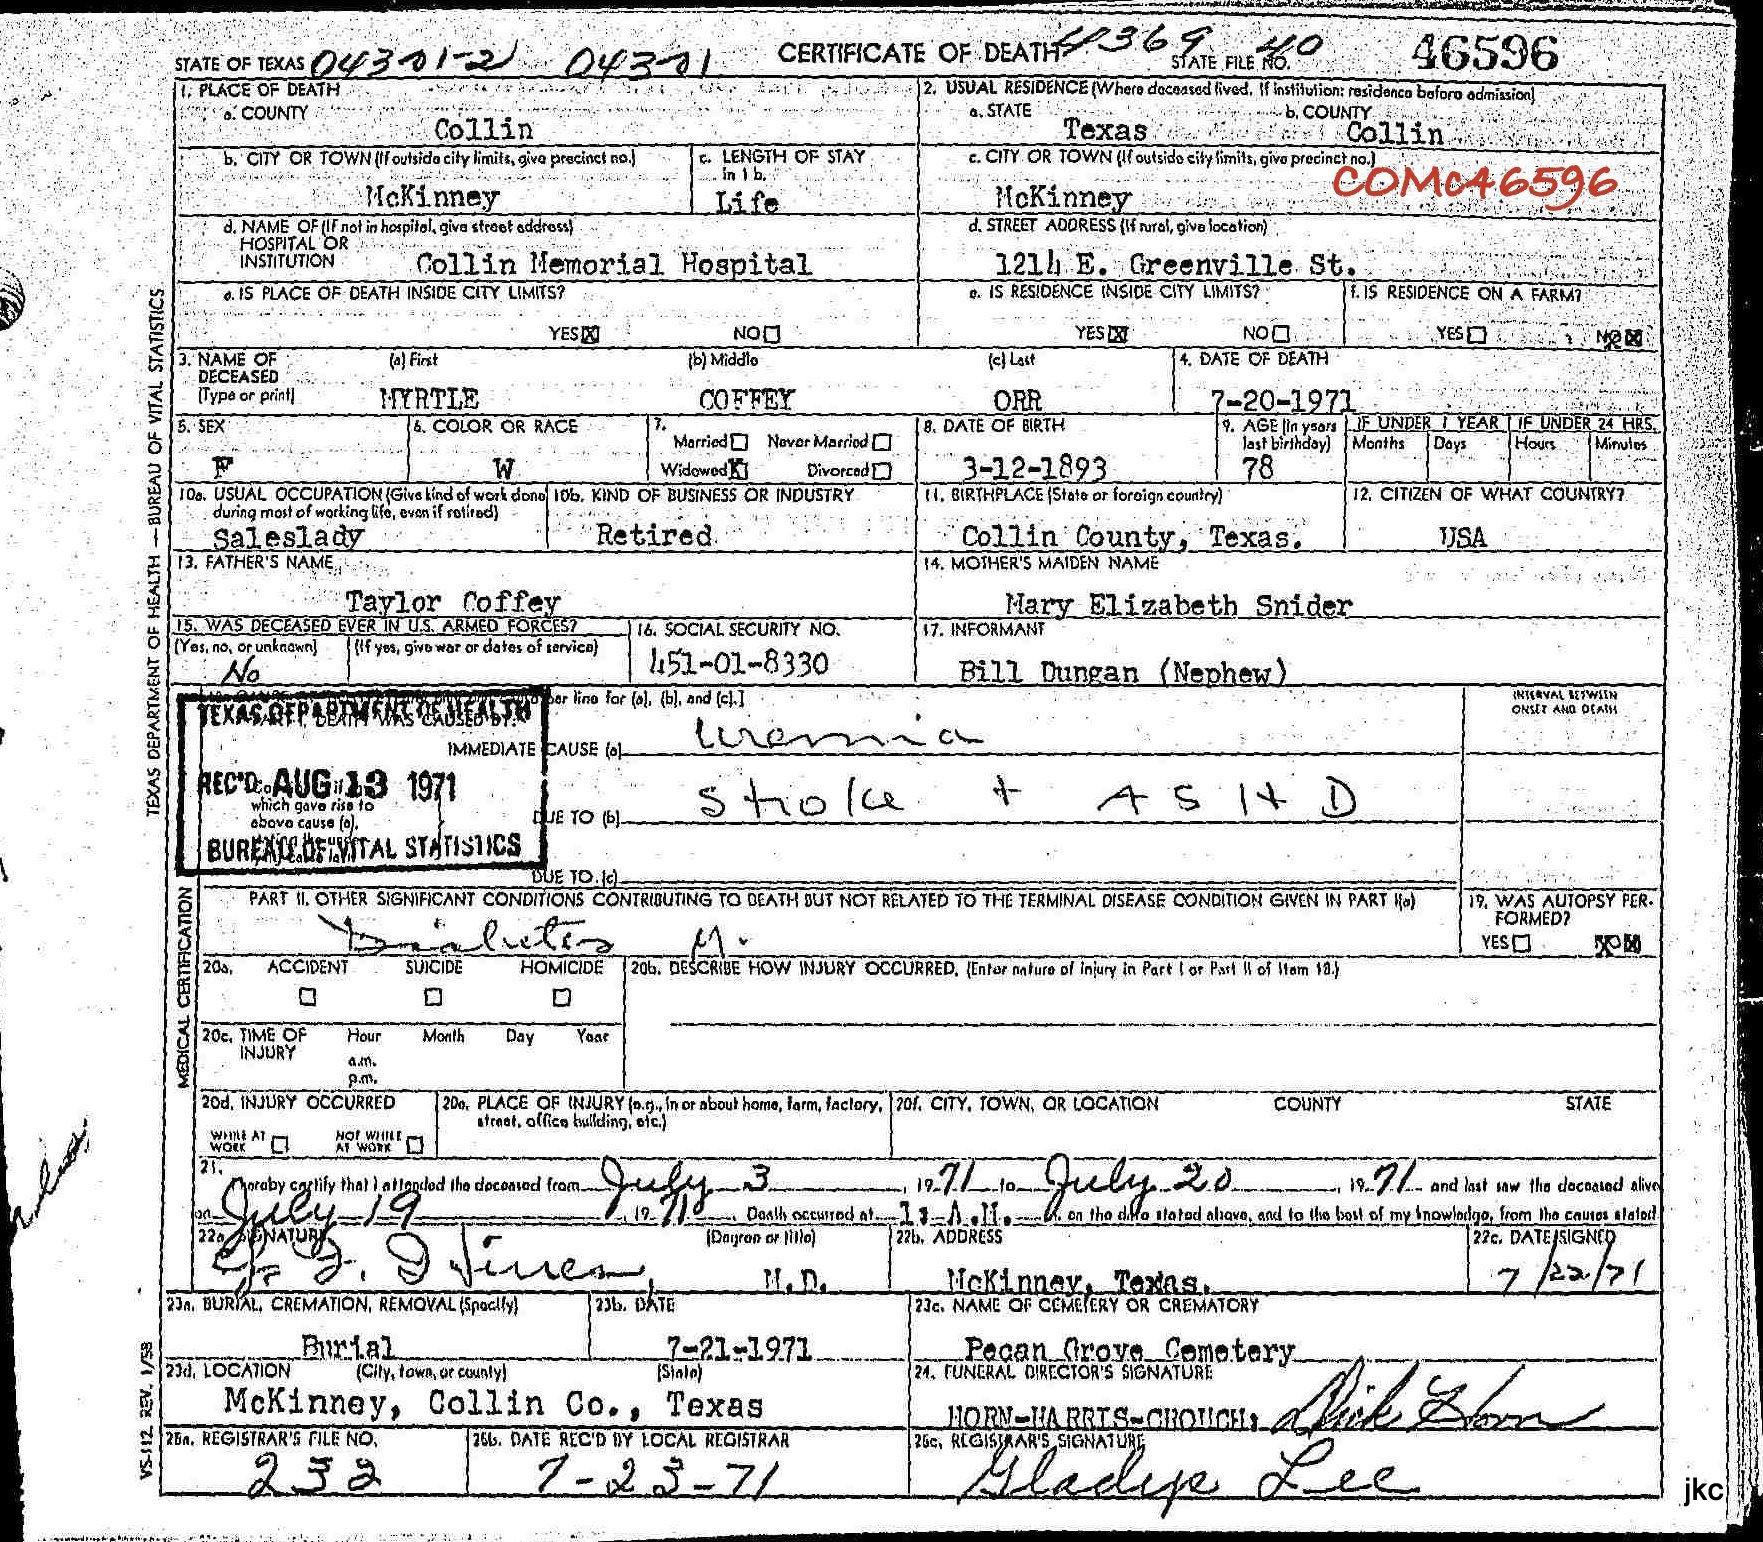 STATE OF TEXAS 04301-2 04301 CERTIFICATE OF DEATH 4369 40 STATE FILE NO. 46596
1. PLACE OF DEATH
a. COUNTY
Collin
2. USUAL RESIDENCE (Where deceased lived. If institution: residence before admission)
a. STATE b. COUNTY
Texas Collin
b. CITY OR TOWN (If outside city limits, give precinct no.)
McKinney
c. LENGTH OF STAY
in 1 b.
Life
c. CITY OR TOWN (If outside city limits, give precinct no.)
McKinney
COMc46596
d. NAME OF (If not in hospital, give street address)
HOSPITAL OR
INSTITUTION Collin Memorial Hospital
d. STREET ADDRESS (If rural, give location)
1214 E. Greenville St.
e. IS PLACE OF DEATH INSIDE CITY LIMITS?
YES X NO
e. IS RESIDENCE INSIDE CITY LIMITS?
YES X NO
f. IS RESIDENCE ON A FARM?
YES NO X
3. NAME OF
DECEASED
(Type or print)
(a) First (b) Middle (c) Last
MYRTLE COFFEY ORR
4. DATE OF DEATH
7-20-1971
5. SEX
F
6. COLOR OR RACE
W
7.
Married Never Married
Widowed X Divorced
8. DATE OF BIRTH
3-12-1893
9. AGE (In years
last birthday)
78
IF UNDER 1 YEAR IF UNDER 24 HRS.
Months Days Hours Minutes
10a. USUAL OCCUPATION (Give kind of work done
during most of working life, even if retired)
Saleslady
10b. KIND OF BUSINESS OR INDUSTRY
Retired
11. BIRTHPLACE (State or foreign country)
Collin County, Texas.
12. CITIZEN OF WHAT COUNTRY?
USA
13. FATHER'S NAME
Taylor Coffey
14. MOTHER'S MAIDEN NAME
Mary Elizabeth Snider
15. WAS DECEASED EVER IN U.S. ARMED FORCES?
(Yes, no, or unknown) (If yes, give war or dates of service)
No
16. SOCIAL SECURITY NO.
451-01-8330
17. INFORMANT
Bill Dungan (Nephew)
per line for (a), (b), and (c).]
INTERVAL BETWEEN
ONSET AND DEATH
TEXAS DEPARTMENT OF HEALTH
DEATH WAS CAUSED BY:
IMMEDIATE CAUSE (a) Uremia
REC'D AUG 13 1971
which gave rise to
above cause (a),
DUE TO (b) Stroke + ASHD
BUREAU OF VITAL STATISTICS
DUE TO (c)
PART II. OTHER SIGNIFICANT CONDITIONS CONTRIBUTING TO DEATH BUT NOT RELATED TO THE TERMINAL DISEASE CONDITION GIVEN IN PART I(a)
Diabetes M.
19. WAS AUTOPSY PER-
FORMED?
YES NO X
20a. ACCIDENT SUICIDE HOMICIDE
20b. DESCRIBE HOW INJURY OCCURRED. (Enter nature of injury in Part I or Part II of Item 18.)
20c. TIME OF
INJURY
Hour Month Day Year
a.m.
p.m.
20d. INJURY OCCURRED
WHILE AT
WORK
NOT WHILE
AT WORK
20e. PLACE OF INJURY (e.g., in or about home, farm, factory,
street, office building, etc.)
20f. CITY, TOWN, OR LOCATION COUNTY STATE
21.
I hereby certify that I attended the deceased from July 3, 1971 to July 20, 1971 and last saw the deceased alive
on July 19, 1971. Death occurred at A.M. m. on the date stated above, and to the best of my knowledge, from the causes stated.
22a. SIGNATURE (Degree or title)
M.D.
22b. ADDRESS
McKinney, Texas.
22c. DATE SIGNED
7/22/71
23a. BURIAL, CREMATION, REMOVAL (Specify)
Burial
23b. DATE
7-21-1971
23c. NAME OF CEMETERY OR CREMATORY
Pecan Grove Cemetery
23d. LOCATION (City, town, or county) (State)
McKinney, Collin Co., Texas
24. FUNERAL DIRECTOR'S SIGNATURE
HORN-HARRIS-CROUCH, Dick Horn
25a. REGISTRAR'S FILE NO.
232
25b. DATE REC'D BY LOCAL REGISTRAR
7-23-71
25c. REGISTRAR'S SIGNATURE
Gladys Lee
TEXAS DEPARTMENT OF HEALTH — BUREAU OF VITAL STATISTICS
MEDICAL CERTIFICATION
VS-112 REV. 1/58
jkc